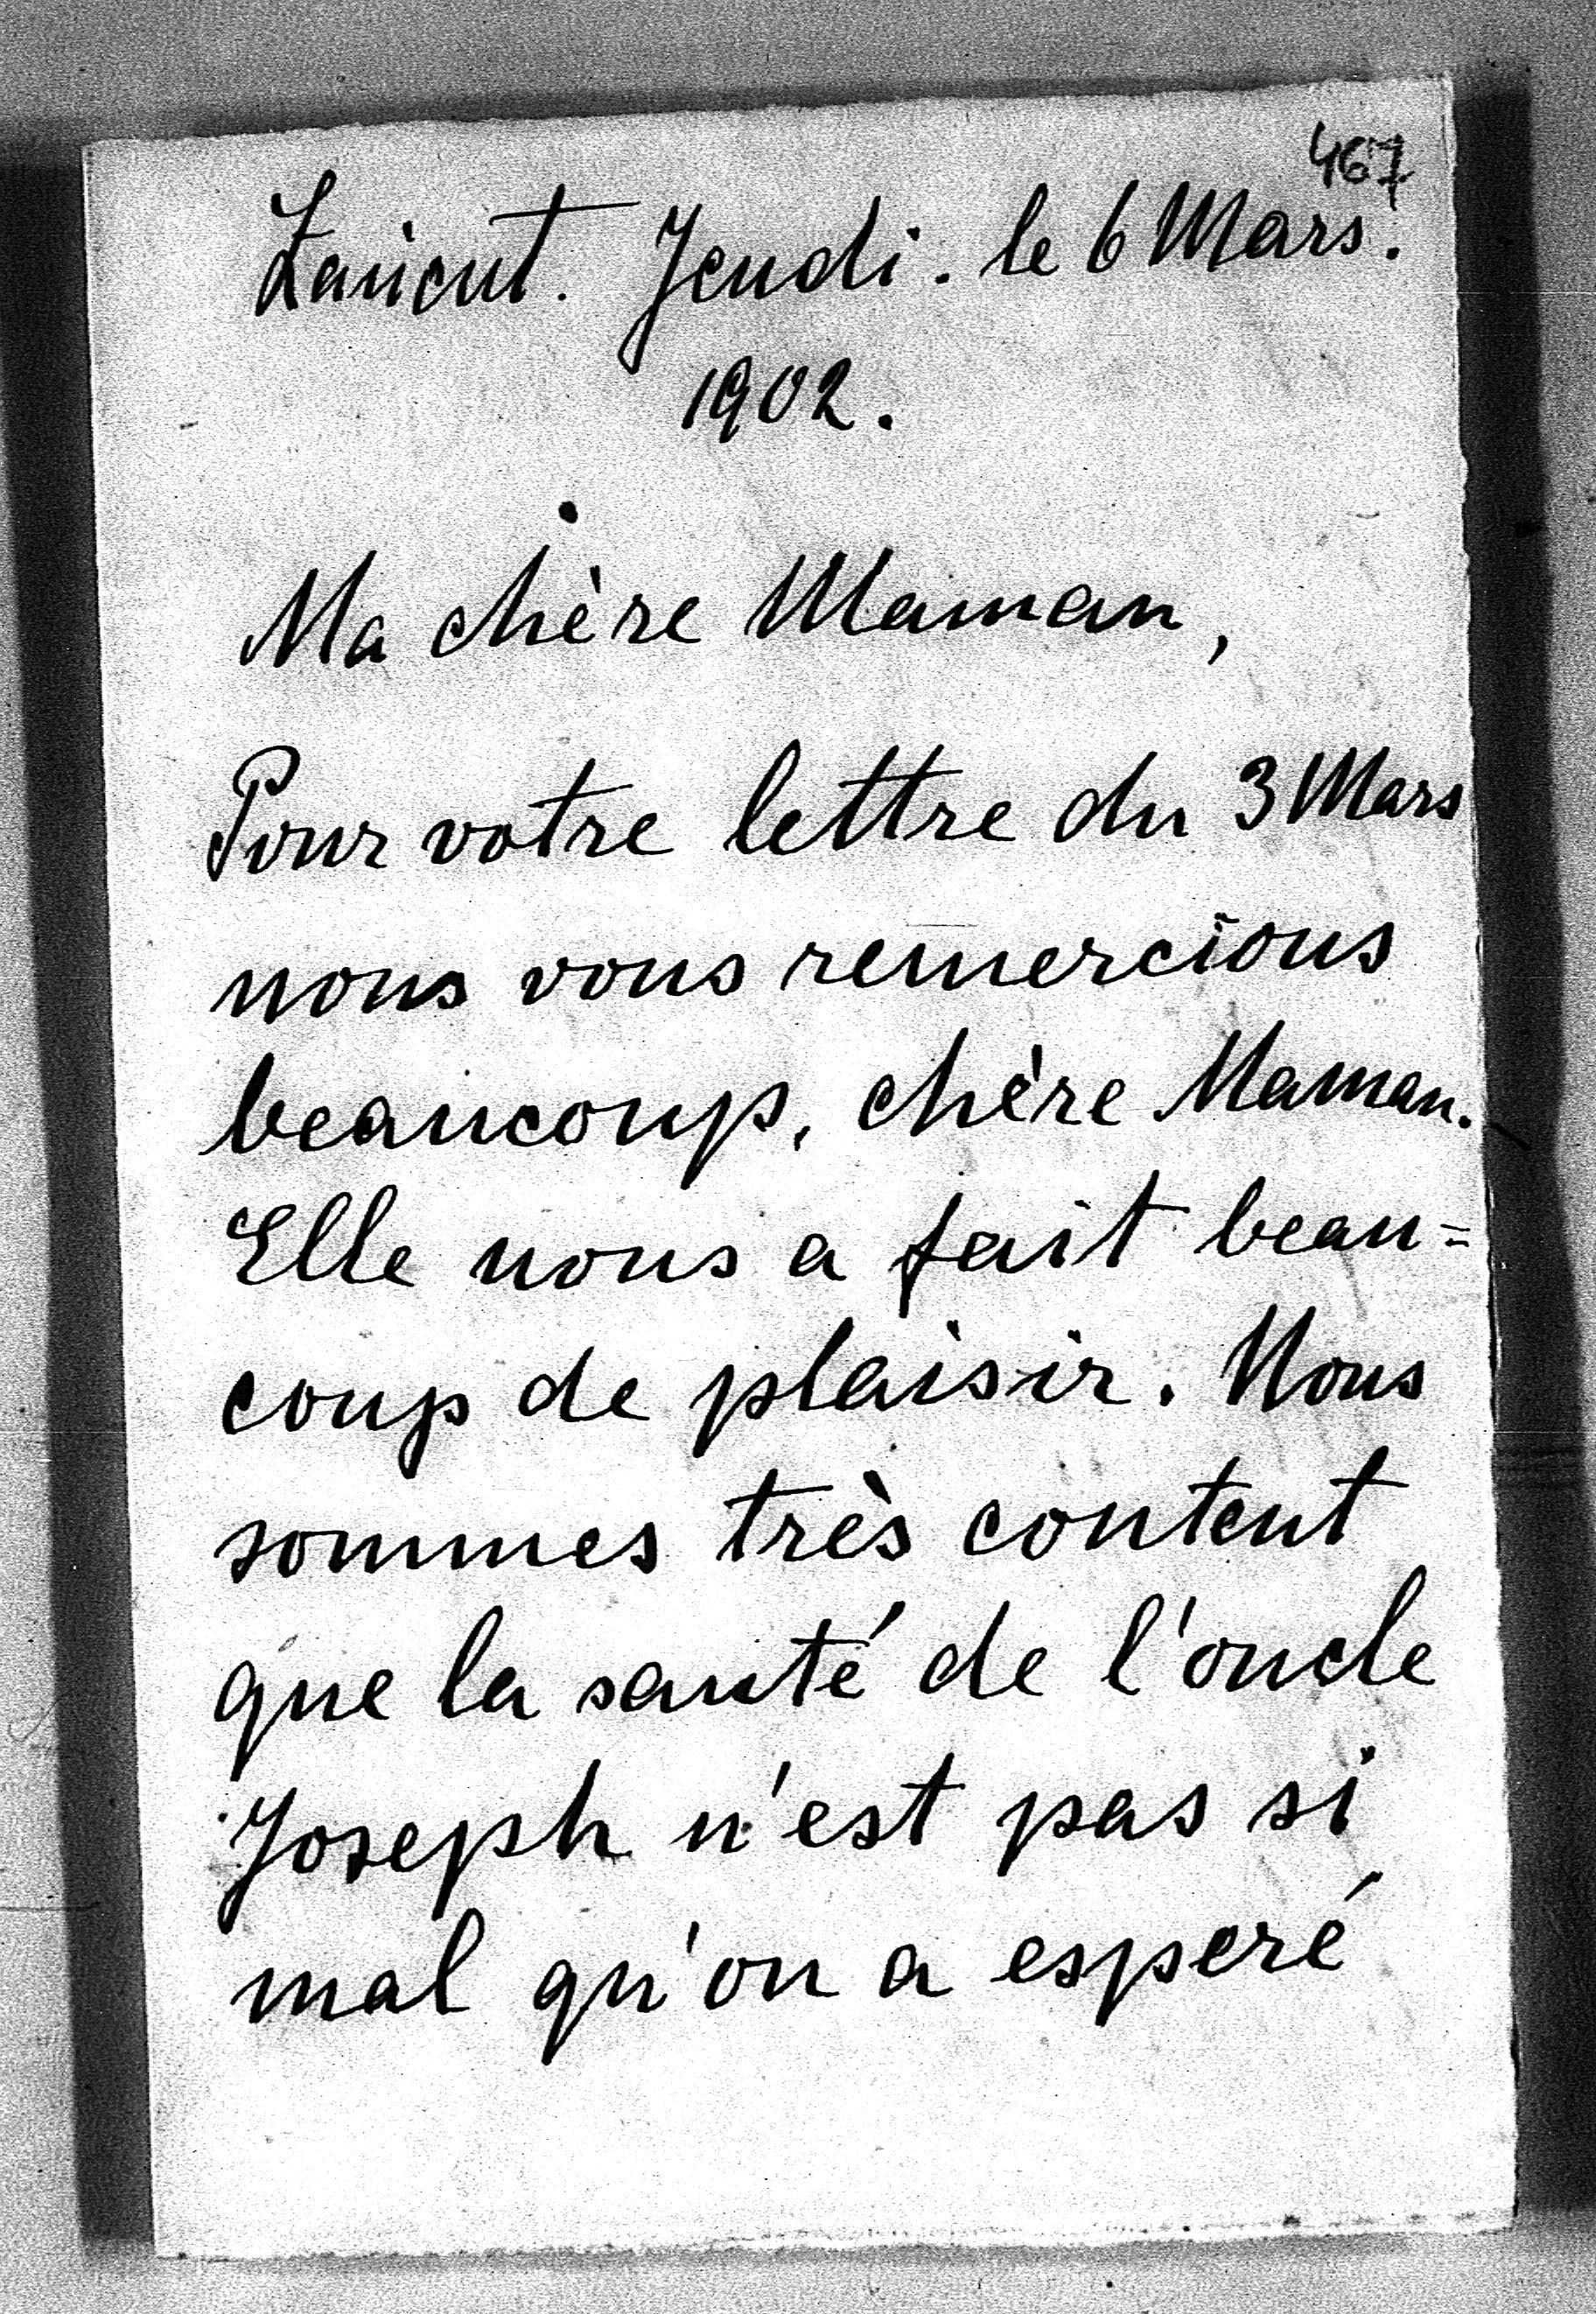 467
Lanicut. Jeudi. le 6 Mars.
1902.
Ma chère Maman,
Pour votre lettre du 3 Mars
nous vous remercions
beaucoup, chère Maman.
Elle nous a fait beau=
coup de plaisir. Nous
sommes très content
que la santé de l'oncle
Joseph n'est pas si
mal qu'on a esperé